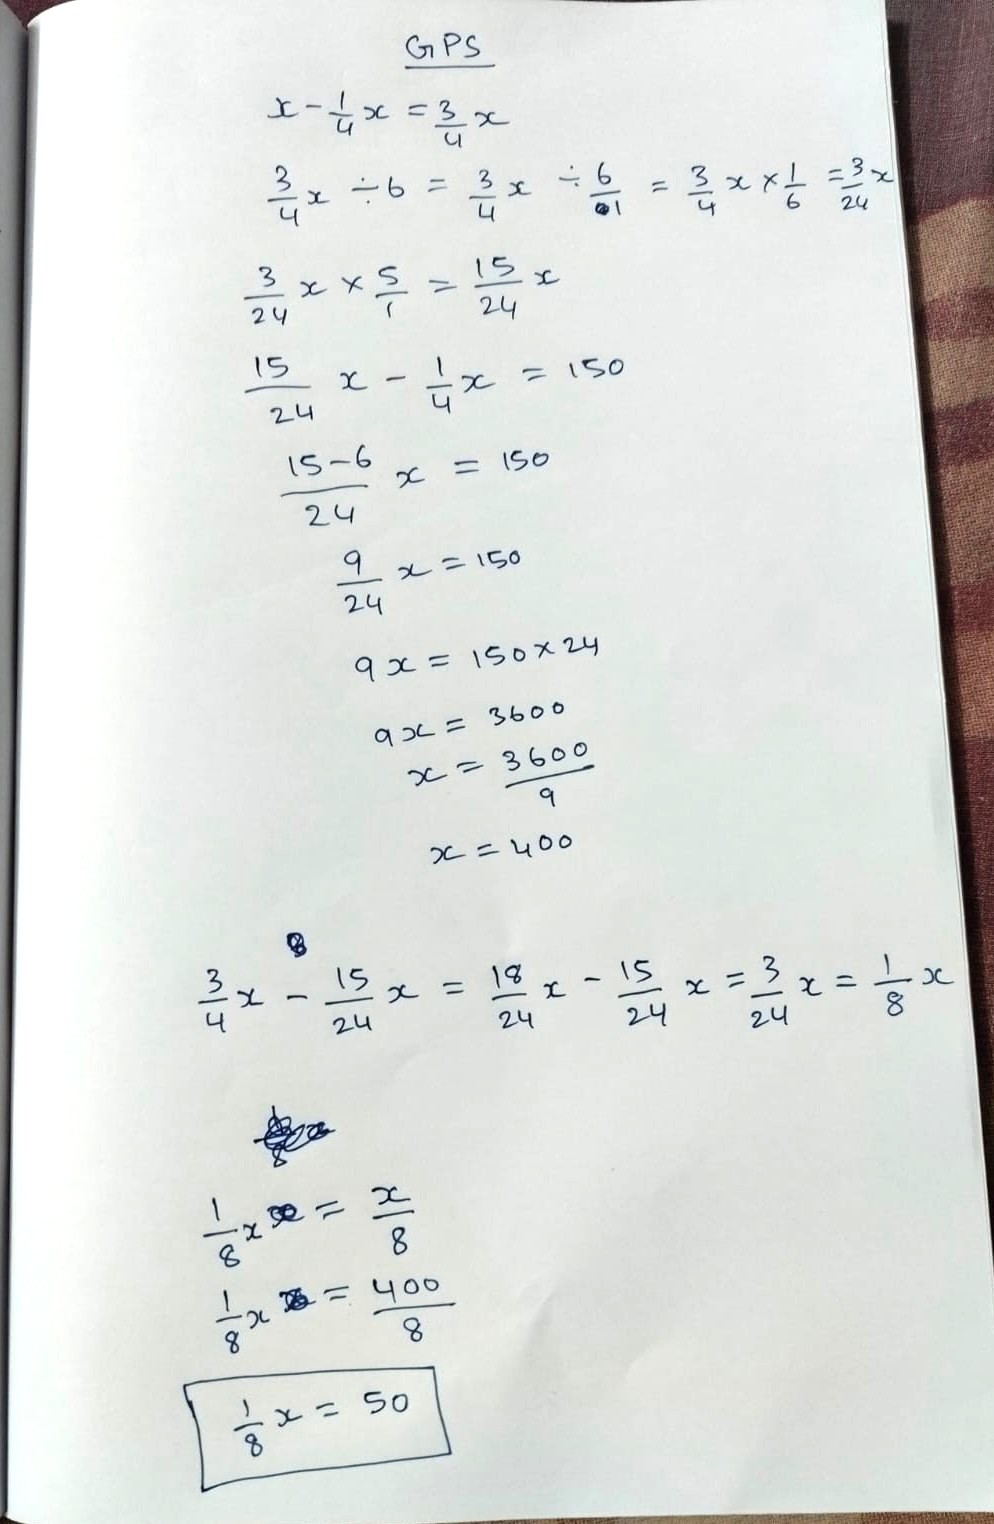 GPS
x - 1/4 x = 3/4 x
3/4 x ÷ 6 = 3/4 x ÷ 6/1 = 3/4 x × 1/6 = 3/24 x
3/24 x × 5/1 = 15/24 x
15/24 x - 1/4 x = 150
15-6/24 x = 150
9/24 x = 150
9x = 150 × 24
9x = 3600
x = 3600/9
x = 400
3/4 x - 15/24 x = 18/24 x - 15/24 x = 3/24 x = 1/8 x
1/8 x = x/8
1/8 x = 400/8
1/8 x = 50